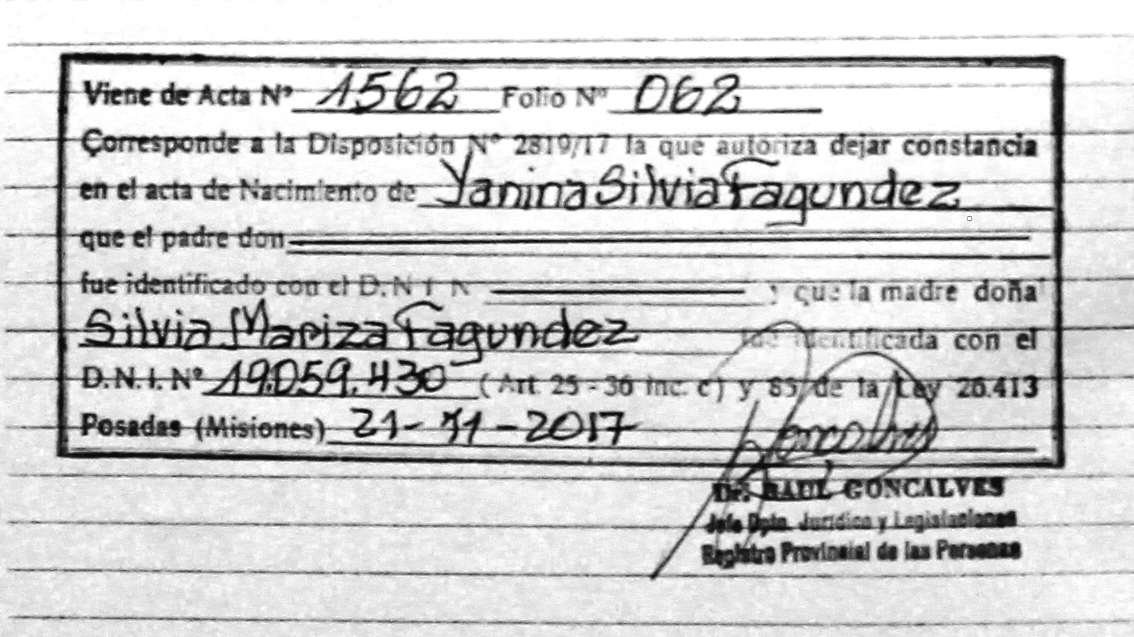 Viene de Acta Nº 1562 Folio Nº 062
Corresponde a la Disposición Nº 2819/17 la que autoriza dejar constancia
en el acta de Nacimiento de Yanina Silvia Fagundez
que el padre don
fue identificado con el D.N.I. N y que la madre doña
Silvia Mariza Fagundez fue identificada con el
D.N.I. Nº 19.059.430 (Art. 25 - 36 inc. c) y 85 de la Ley 26.413
Posadas (Misiones) 21-11-2017
Dr. RAUL GONCALVES
Jefe Dpto. Jurídico y Legislaciones
Registro Provincial de las Personas